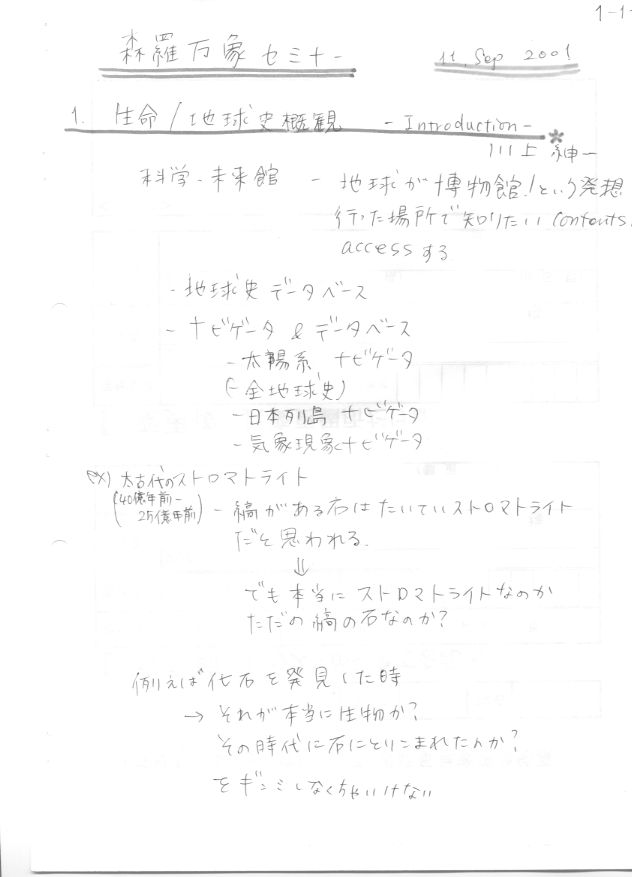 1-1-
森羅万象セミナー 11. Sep 2001
1. 生命/地球史概観 - Introduction -
川上 紳一
科学-未来館 - 地球が博物館!という発想
行った場所で知りたい contents.
accessする
- 地球史データベース
- ナビゲータ & データベース
- 太陽系 ナビゲータ
(- 全地球史)
- 日本列島 ナビゲータ
- 気象現象ナビゲータ
ex) 太古代のストロマトライト
(40億年前- - 縞がある石はたいていストロマトライト
25億年前) だと思われる.
⇓
でも本当にストロマトライトなのか
ただの縞の石なのか?
例えば化石を発見した時
→ それが本当に生物か?
その時代に石にとりこまれたんか?
をギンミしなくちゃいけない